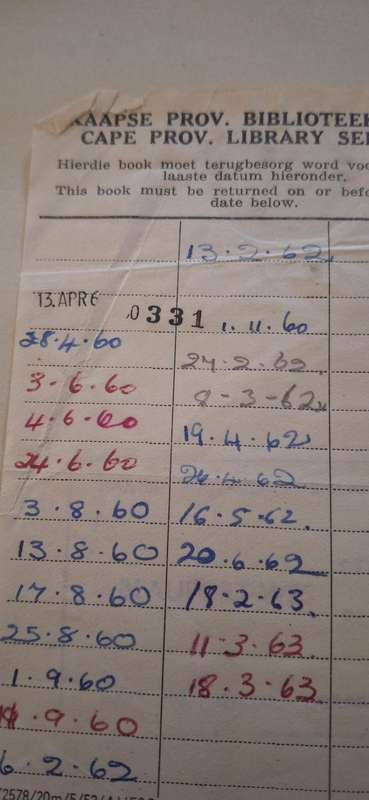 KAAPSE PROV. BIBLIOTEEK
CAPE PROV. LIBRARY SE
Hierdie boek moet terugbesorg word voo
laaste datum hieronder.
This book must be returned on or befo
date below.
13.APR 6
28.4.60
3.6.60
4.6.60
24.6.60
3.8.60
13.8.60
17.8.60
25.8.60
1.9.60
.9.60
6.2.62
13.2.62
0331 1.11.60
24.2.62
8-3-62
19.4.62
26.4.62
16.5.62.
20.6.62
18.2.63.
11.3.63.
18.3.63